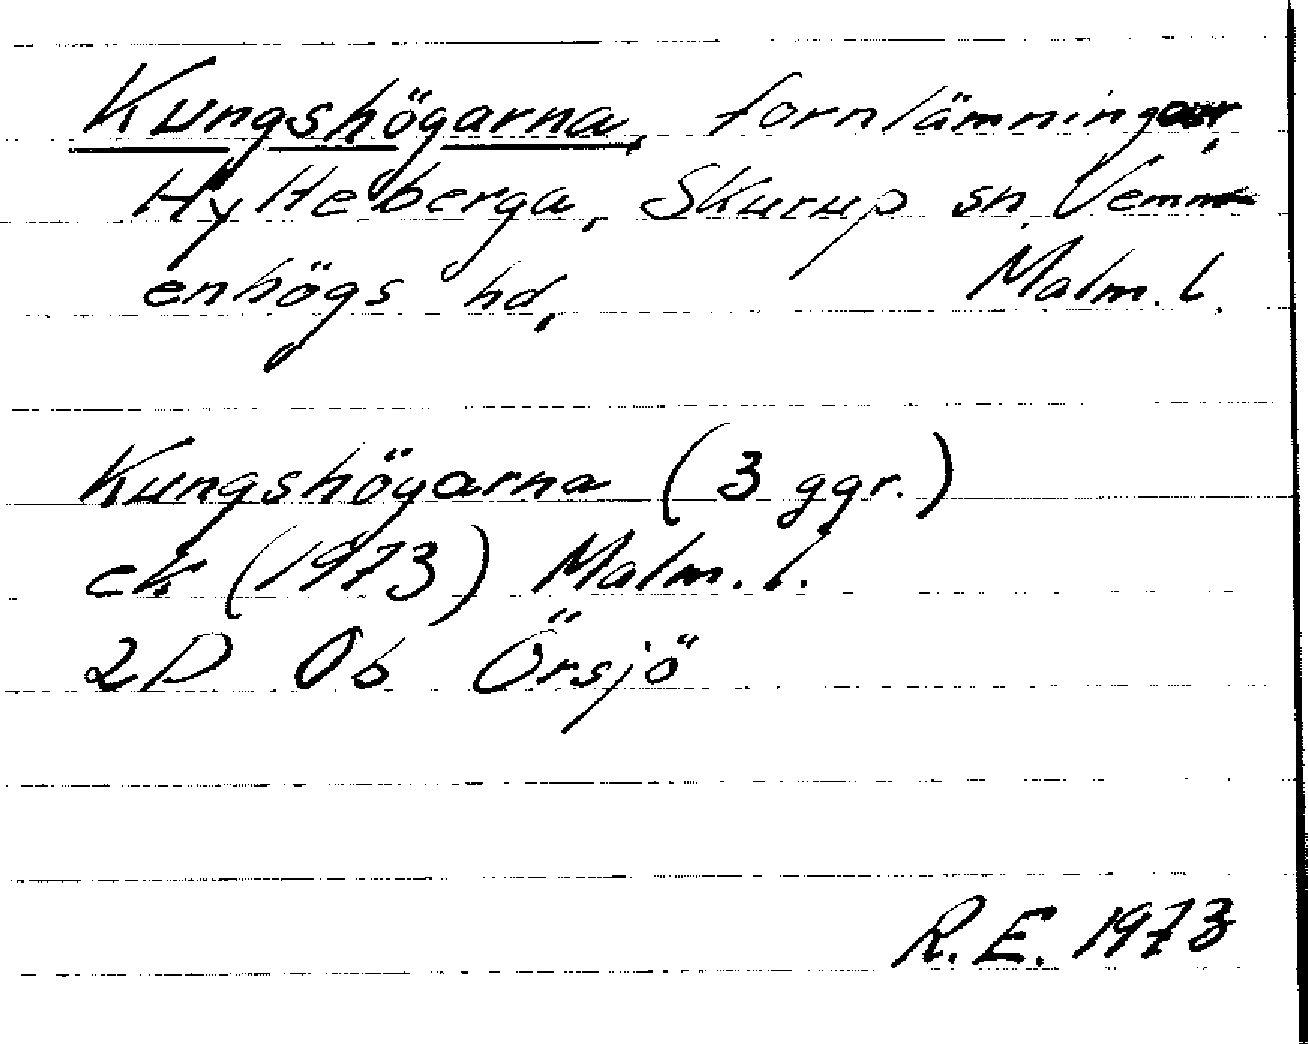 Kungshögarna, fornlämningar,
Hylteberga, Skurup sn, Vemm-
enhögs hd, Malm. l.
Kungshögarna (3 ggr.)
ek (1973) Malm. l.
2D 0b Örsjö
R.E. 1973